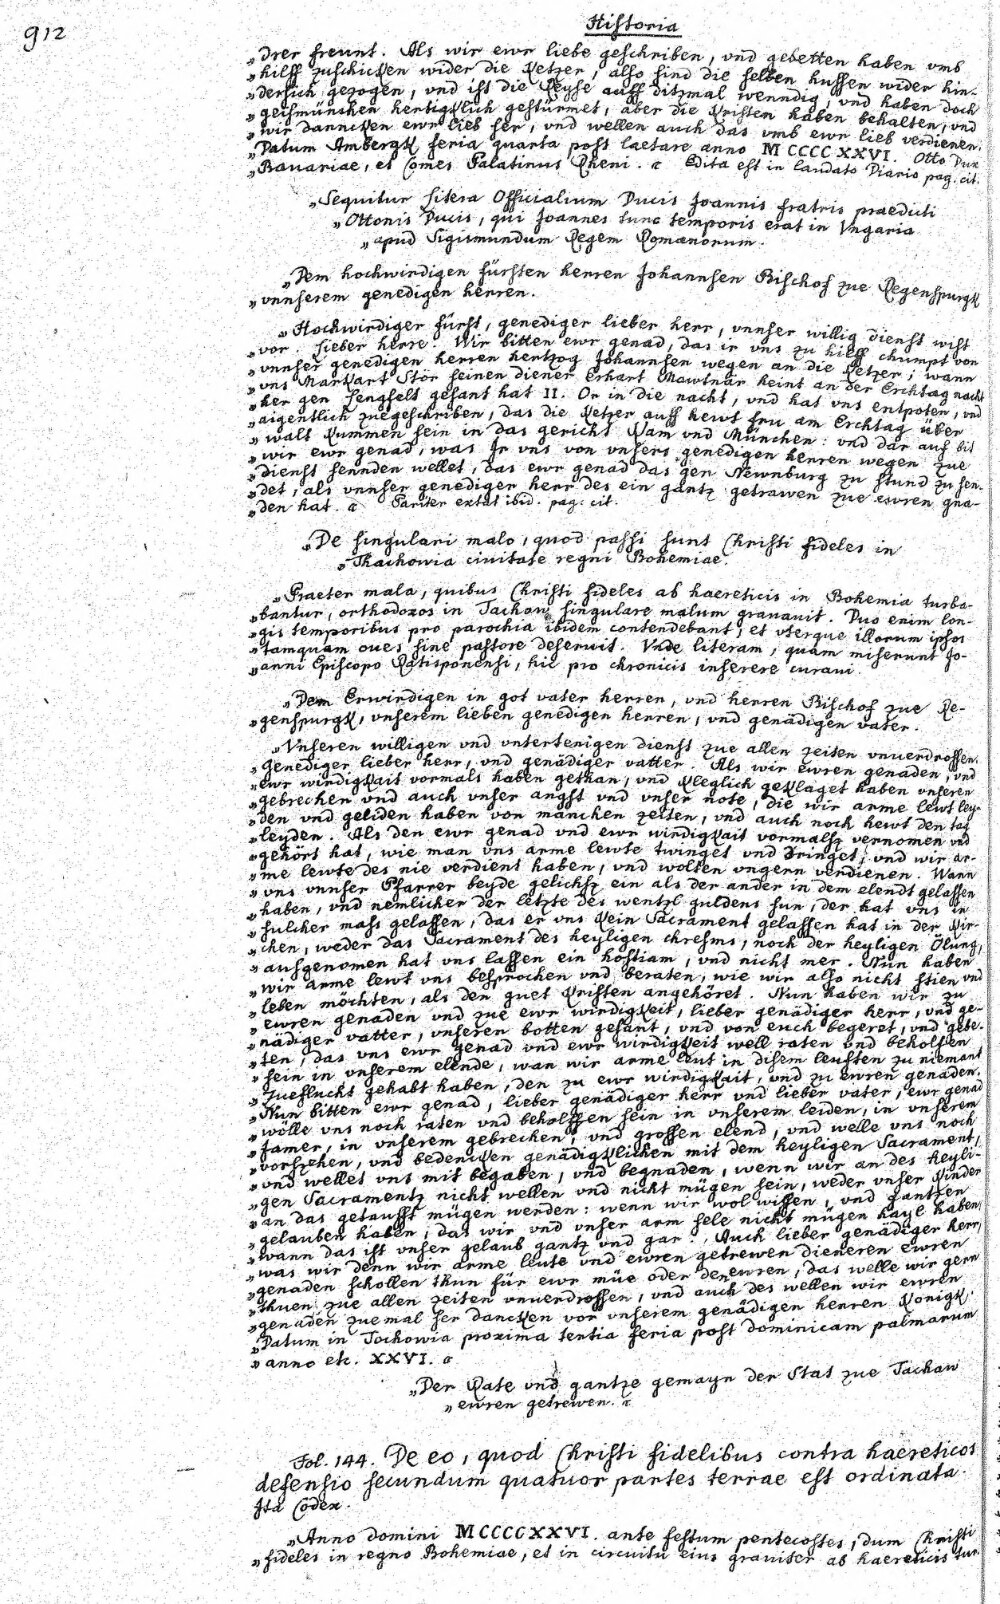 912
Historia
„drer freunt. Als wir ewr liebe geschriben, vnd gebetten haben vmb
„hilff zuschicken wider die Ketzer, also sind die selben hussen wider hin-
„dersich gezogen, vnd ist die Reyse auff ditzmal wenndig, vnd haben doch
„geismünchen hertigklich gestürmet, aber die Kristen haben behalten, vnd
„wir dancken ewr lieb ser, vnd wellen auch das vmb ewr lieb verdienen.
„Datum Ambergk feria quarta post laetare anno MCCCCXXVI. Otto Dux
„Bauariae, et Comes Palatinus Rheni. Edita est in laudato Diario pag. cit.
„Sequitur litera Officialium Ducis Joannis fratris praedicti
„Ottonis Ducis, qui Joannes tunc temporis erat in Vngaria
„apud Sigismundum Regem Romanorum.
„Dem hochwirdigen fürsten herren Johannsen Bischof zue Regenspurgk
„vnnserem genedigen herren.
„Hochwirdiger fürst, genediger lieber herr, vnnser willig dienst wist
„vor. Lieber herre. Wir bitten ewr genad, das ir vns zu hilff chumpt von
„vnnser genedigen herren hertzog Johannsen wegen an die Ketzer; wann
„vns Markart Stör seinen diener Erhart Mawtnär heint an der Erchtag nacht
„her gen Hengfelt gesant hat II. Or in die nacht, vnd hat vns entpoten, vnd
„aigentlich zuegeschriben, das die Ketzer auff hewt fru am Erchtag über
„walt kummen sein in das gericht Kam vnd München: vnd dar auf bit
„wir ewr genad, was Ir vns von vnsers genedigen herren wegen zue
„dienst sennden wellet, das ewr genad das gen Newnburg zu stund zu sen-
„det, als vnnser genediger herr des ein gantz getrawen zue ewren gna-
„den hat. Pariter extat ibid. pag. cit.
„De singulari malo, quod passi sunt Christi fideles in
„Thachowia ciuitate regni Bohemiae.
„Praeter mala, quibus Christi fideles ab haereticis in Bohemia turba-
„bantur, orthodoxos in Tachaw singulare malum grauauit. Duo enim lon-
„gis temporibus pro parochia ibidem contendebant, et vterque illorum ipsos
„tamquam oues sine pastore deseruit. Vnde literam, quam miserunt Jo-
„anni Episcopo Ratisponensi, hic pro chronicis inserere curaui.
„Dem Erwirdigen in got vater herren, vnd herren Bischof zue Re-
„genspurgk, vnserem lieben genedigen herren, vnd genädigen vater.
„Vnseren willigen vnd vntertenigen dienst zue allen zeiten vnuerdrossen.
„Genediger lieber herr, vnd genädiger vatter. Als wir ewren genaden, vnd
„ewr wirdigkait vormals haben gethan, vnd kleglich geklaget haben vnseren
„gebrechen vnd auch vnser angst vnd vnser note, die wir arme lewt ley-
„den vnd geliden haben von manchen zeiten, vnd auch noch hewt den tag
„leyden. Als den ewr genad vnd ewr wirdigkait vormalsz vernomen vnd
„gehört hat, wie man vns arme lewte twinget vnd dringet; vnd wir ar-
„me lewte des nie verdient haben, vnd wolten vngern verdienen. Wann
„vns vnnser Pfarrer beyde gelichsz ein als der ander in dem elendt gelassen
„haben, vnd nemlicher der letzte des wentzl guldens sun, der hat vns in
„sulcher mass gelassen, das er vns kein Sacrament gelassen hat in der Kir-
„chen, weder das Sacrament des heyligen chresms, noch der heyligen Ölung,
„aufgenomen hat vns lassen ein hostiam, vnd nicht mer. Nun haben
„wir arme lewt vns besprochen vnd beraten, wie wir also nicht stien vnd
„leben möchten, als den guet Kristen angehöret. Nun haben wir zu
„ewren genaden vnd zue ewr wirdigkeit, lieber genädiger herr, vnd ge-
„nädiger vatter, vnseren botten gesant, vnd von euch begeret, vnd gebe-
„ten, das vns ewr genad vnd ewr wirdigkeit well raten vnd beholfen
„sein in vnserem elende, wan wir arme leut in disem leuften zu niemant
„zueflucht gehabt haben, den zu ewr wirdigkait, vnd zu ewren genaden.
„Nun bitten ewr genad, lieber genädiger herr vnd lieber vater, ewr genad
„wölle vns noch raten vnd beholffen sein in vnserem leiden, in vnseren
„Jamer, in vnserem gebrechen, vnd grossen elend, vnd welle vns noch
„vorsehen, vnd bedencken genädigklichen mit dem heyligen Sacrament,
„vnd wellet vns mit begaben, vnd begnaden, wenn wir an des heyli-
„gen Sacramentz nicht wellen vnd nicht mügen sein, weder vnser Kinder
„an das getaufft mügen werden: wenn wir wol wissen, vnd gantzen
„gelauben haben, das wir vnd vnser arm sele nicht mügen hayl haben,
„wann das ist vnser gelaub gantz vnd gar. Auch lieber genädiger herr,
„was wir denn wir arme leute vnd ewren getrewen dieneren ewren
„genaden schollen thun für ewr müe oder den ewren, das welle wir gern
„thuen zue allen zeiten vnuerdrossen, vnd auch des wellen wir ewren
„genaden zuemal ser dancken vor vnserem genädigen herren Königk.
„Datum in Tochowia proxima tertia feria post dominicam palmarum
„anno etc. XXVI.
„Der Rate vnd gantze gemayn der Stat zue Tachaw
„ewren getrewen.
Fol. 144. De eo, quod Christi fidelibus contra haereticos
defensio secundum quatuor partes terrae est ordinata.
Ita Codex.
„Anno domini MCCCCXXVI. ante festum pentecostes, dum Christi
„fideles in regno Bohemiae, et in circuitu eius grauiter ab haereticis tur-